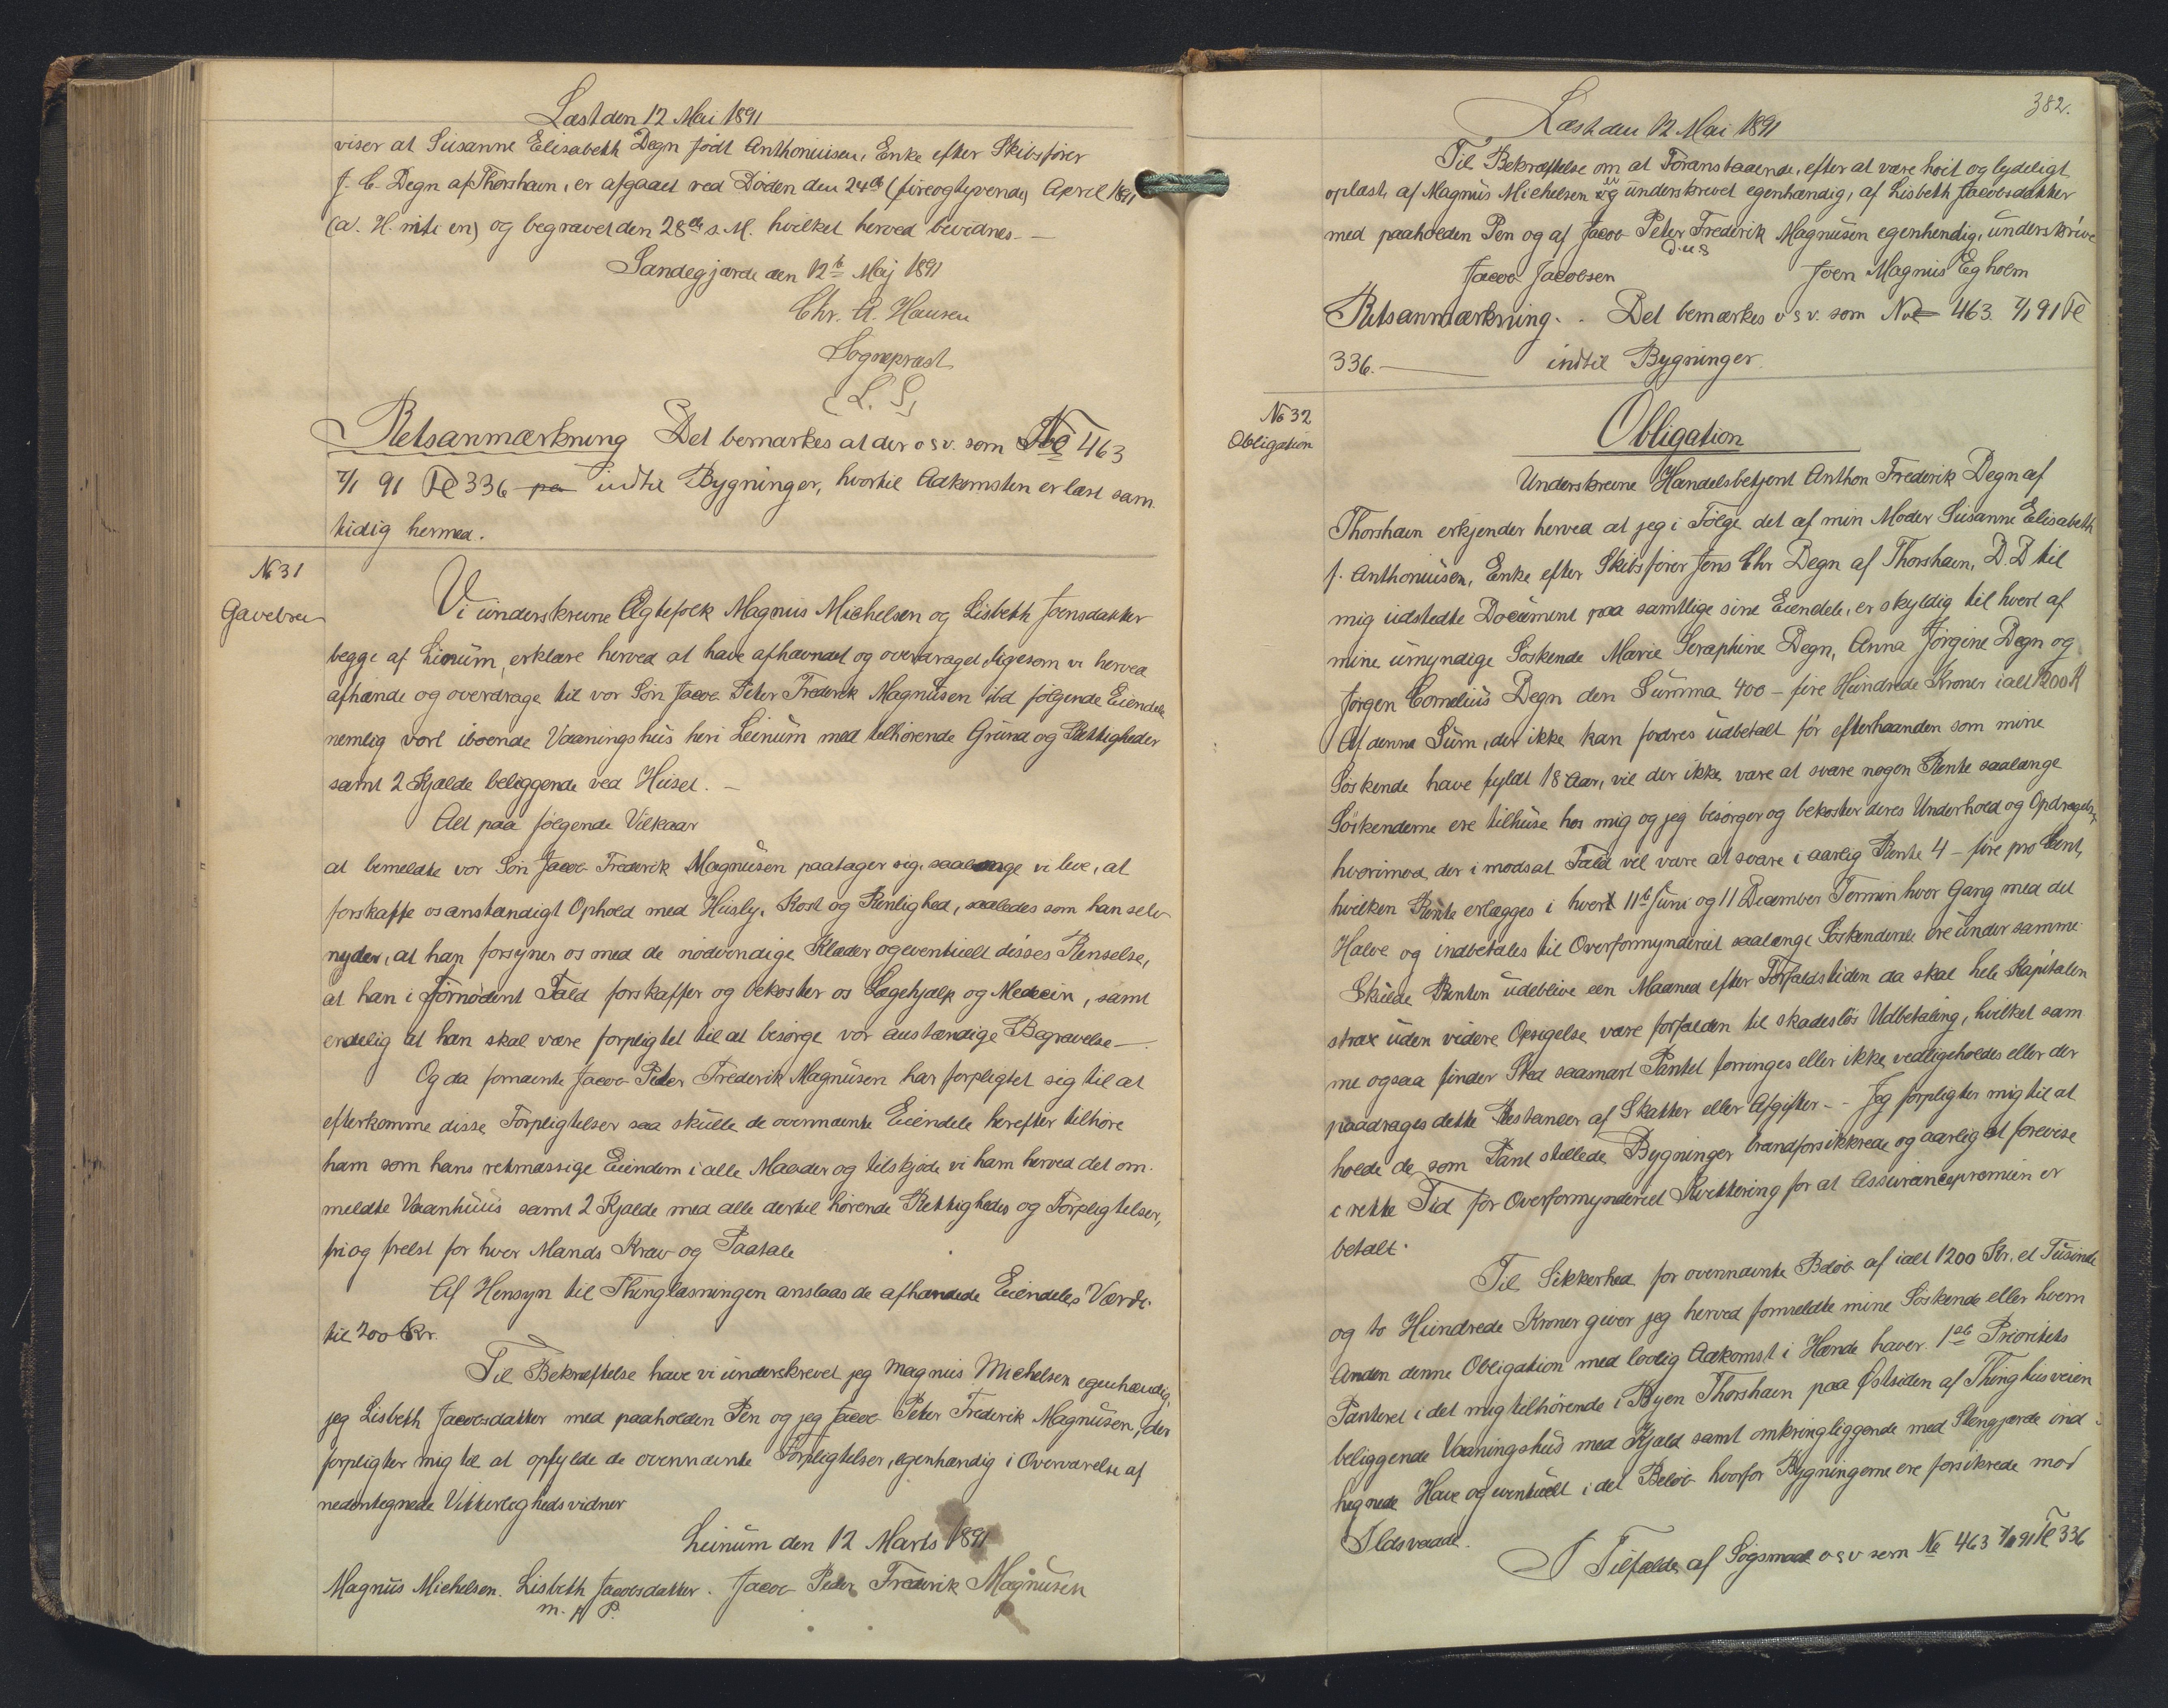 Læst den 12 Mai 1891
viser at Susanne Elisabeth Degn født Anthoniusen, Enke efter Skibsfører
J. C. Degn af Thorshavn, er afgaaet ved Døden den 24de (fireogtyvende) April 1891
(a. H. nitien) og begravet den 28de s. M. hvilket herved bevidnes. —
Sandegjærde den 12te Maj 1891
Chr. A. Hansen
Sognepræst
(L. S.)
Retsanmærkning Det bemærkes at der o s v. som No 463
7/1 91 Fe 336 indtil Bygninger, hvortil Adkomsten er læst sam
tidig hermed.
No 31
Gavebrev
Vi underskrevne Ægtefolk Magnus Michelsen og Lisbeth Joensdatter
begge af Leinum, erklære herved at have afhændet og overdraget, ligesom vi herved
afhænde og overdrage til vor Søn Jacob Peter Frederik Magnusen ibd følgende Eiendele
nemlig vort iboende Vaaningshus heri Leinum med tilhørende Grund og Rettigheder
samt 2 Kjælde beliggende ved Huset. —
Alt paa følgende Vilkaar
at bemeldte vor Søn Jacob Frederik Magnusen paatager sig, saalænge vi leve, at
forskaffe os anstændigt Ophold med Husly, Kost og Renlighed, saaledes som han selv
nyder, at han forsyner os med de nødvendige Klæder og eventuelt disses Renselse,
at han i fornødent Fald forskaffer og bekoster os Lægehjælp og Medecin, samt
endelig at han skal være forpligtet til at besørge vor anstændige Begravelse —
Og da fornævnte Jacob Peter Frederik Magnusen har forpligtet sig til at
efterkomme disse Forpligtelser saa skulle de ovennævnte Eiendele herefter tilhøre
ham som hans retmæssige Eiendom i alle Maader og tilskjøde vi ham herved det om
meldte Vaanhuus samt 2 Kjælde med alle dertil hørende Rettigheder og Forpligtelser,
fri og frelst for hver Mands Krav og Paatale
Af Hensyn til Thinglæsningen anslaas de afhændede Eiendeles Værdi
til 200 Kr.
Til Bekræftelse have vi underskrevet jeg Magnus Michelsen egenhændig,
jeg Lisbeth Jacobsdatter med paaholden Pen og jeg Jacob Peter Frederik Magnusen, der
forpligter mig til at opfylde de ovennævnte Forpligtelser, egenhændig i Overværelse af
nedentegnede Vitterligheds vidner
Leinum den 12 Marts 1891
Magnus Michelsen. Lisbeth Jacobsdatter. Jacob Peder Frederik Magnusen
m. p. P.
382.
Læst den 12 Mai 1891
Til Bekræftelse om at Foranstaaende, efter at være høit og lydeligt
oplæst, af Magnus Michelsen er underskrevet egenhændig, af Lisbeth Jacobsdatter
med paaholden Pen og af Jacob Peter Frederik Magnusen egenhendig, underskrive
d u s
Jacob Jacobsen Joen Magnus Egholm
Retsanmærkning. Det bemærkes o s v. som No 463. 7/1 91 Fe
336. — indtil Bygninger
No 32
Obligation
Obligation
Underskrevne Handelsbetjent Anthon Frederik Degn af
Thorshavn erkjender herved at jeg i Følge det af min Moder Susanne Elisabeth
f. Anthoniusen, Enke efter Skibsfører Jens Chr Degn af Thorshavn, D. D til
mig udstedte Document paa samtlige sine Eiendele, er skyldig til hvert af
mine umyndige Søskende Marie Seraphine Degn, Anna Jørgine Degn og
Jørgen Cornelius Degn den Summa 400 – fire Hundrede Kroner ialt 1200 K
Af denne Sum, der ikke kan fordres udbetalt før efterhaanden som mine
Søskende have fyldt 18 Aar, vil der ikke være at svare nogen Rente saalænge
Søskenderne ere tilhuse hos mig og jeg besørger og bekoster deres Underhold og Opdragelse,
hvorimod der i modsat Fald vil være at svare i aarlig Rente 4 – fire pro Cent,
hvilken Rente erlægges i hvert 11te Juni og 11 December Termin hver Gang med det
Halve og indbetales til Overformynderiet saalænge Søskenderne ere under samme
Skulde Renten udeblive een Maaned efter Forfaldstiden da skal hele Kapitalen
strax uden videre Opsigelse være forfalden til skadesløs Udbetaling, hvilket sam
me ogsaa finder Sted saasnart Pantet forringes eller ikke vedligeholdes eller der
paadrages dette Restancer af Skatter eller Afgifter. – Jeg forpligter mig til at
holde de som Pant stillede Bygninger brandforsikkrede og aarlig at forevise
i rette Tid for Overformynderiet Kvittering for at Assurancepræmien er
betalt.
Til Sikkerhed for ovennævnte Beløb af ialt 1200 Kr. et Tusinde
og to Hundrede Kroner giver jeg herved formeldte mine Søskende eller hvem
Anden denne Obligation med lovlig Adkomst i Hænde haver. 1ste Prioritets
Panteret i det mig tilhørende i Byen Thorshavn paa Østsiden af Thinghusveien
beliggende Vaaningshus med Kjæld samt omkringliggende med Stengjærde ind-
hegnede Have og eventuelt i det Beløb hvorfor Bygningerne ere forsikrede mod
Ildsvaade.
I Tilfælde af Søgsmaal o s v som No 463 7/1 91 Fe 336